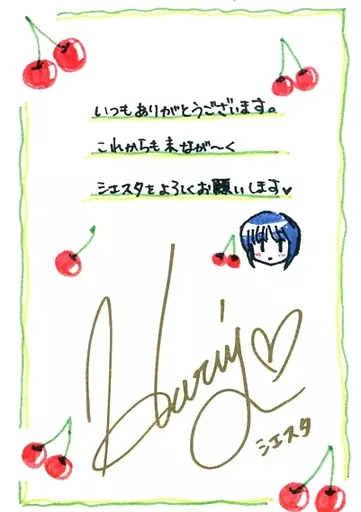 いつもありがとうございます。
これからも末なが〜く
シエスタをよろしくお願いします♥
シエスタ